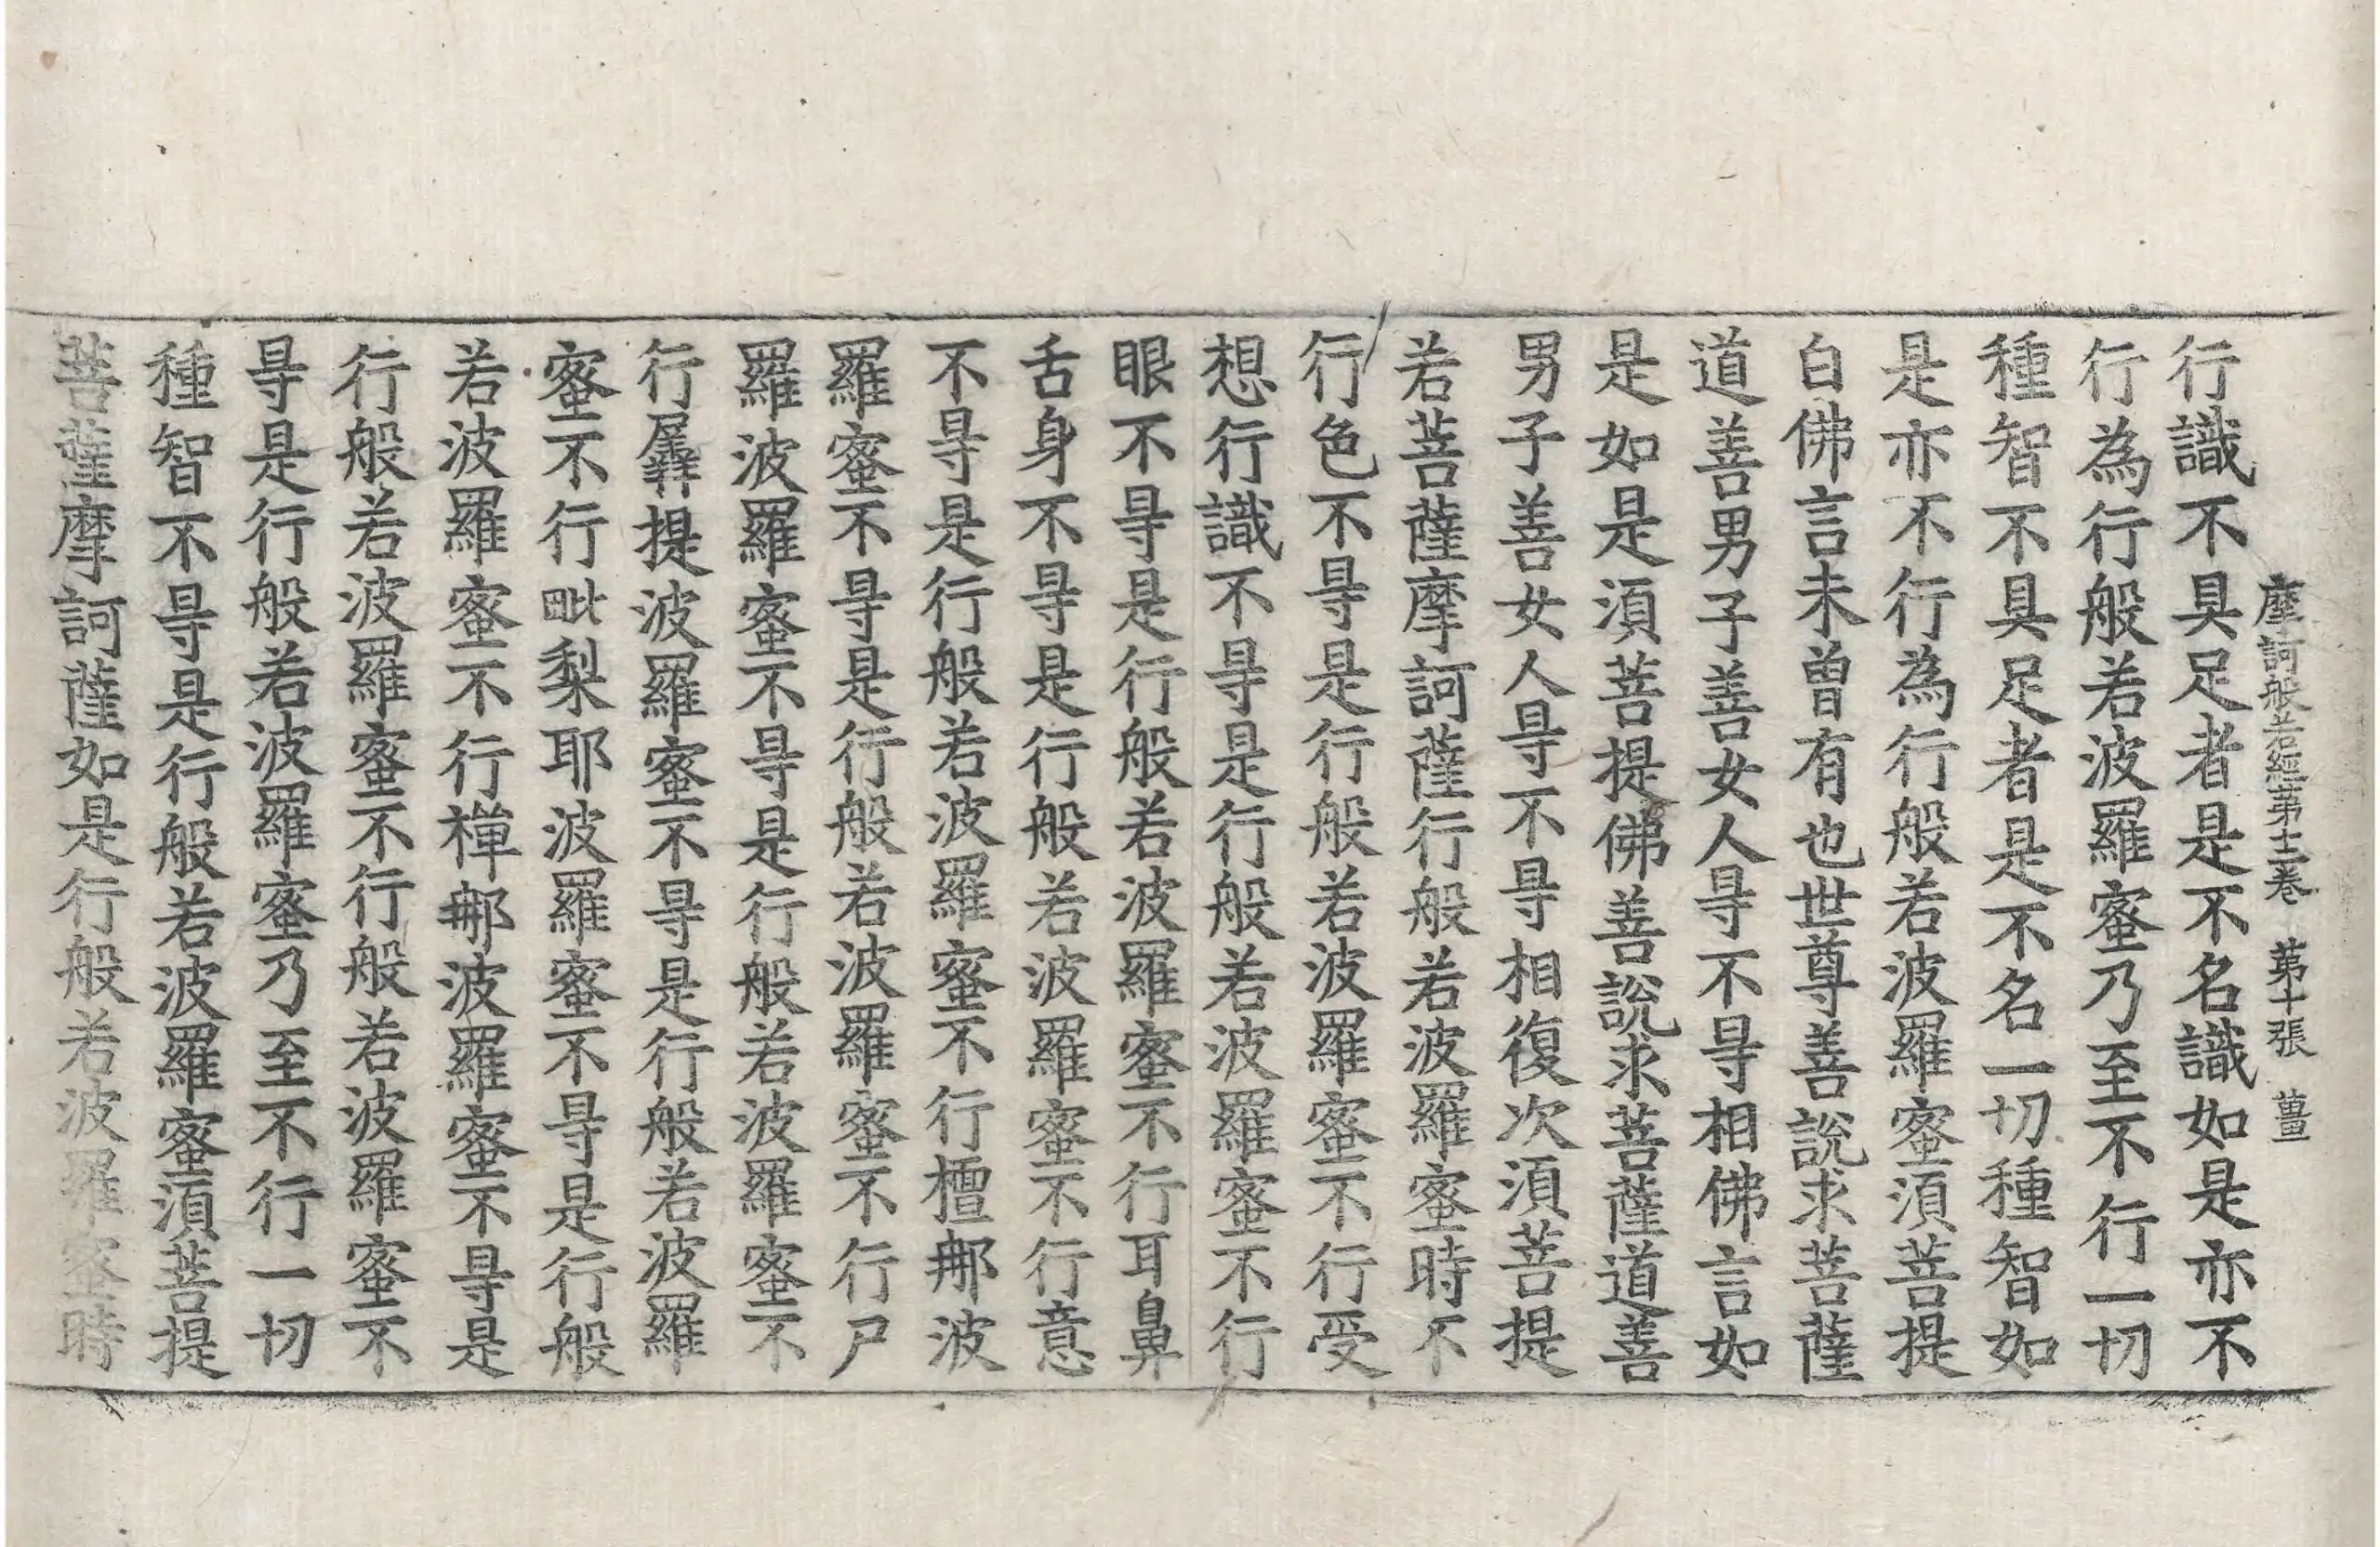 摩訶般若經第十二卷 第十張 薑
行識不具足者是不名識如是亦不
行為行般若波羅蜜乃至不行一切
種智不具足者是不名一切種智如
是亦不行為行般若波羅蜜須菩提
白佛言未曾有也世尊善說求菩薩
道善男子善女人㝵不㝵相佛言如
是如是須菩提佛善說求菩薩道善
男子善女人㝵不㝵相復次須菩提
若菩薩摩訶薩行般若波羅蜜時不
行色不㝵是行般若波羅蜜不行受
想行識不㝵是行般若波羅蜜不行
眼不㝵是行般若波羅蜜不行耳鼻
舌身不㝵是行般若波羅蜜不行意
不㝵是行般若波羅蜜不行檀那波
羅蜜不㝵是行般若波羅蜜不行尸
羅波羅蜜不㝵是行般若波羅蜜不
行羼提波羅蜜不㝵是行般若波羅
蜜不行毗梨耶波羅蜜不㝵是行般
若波羅蜜不行禪那波羅蜜不㝵是
行般若波羅蜜不行般若波羅蜜不
㝵是行般若波羅蜜乃至不行一切
種智不㝵是行般若波羅蜜須菩提
菩薩摩訶薩如是行般若波羅蜜時